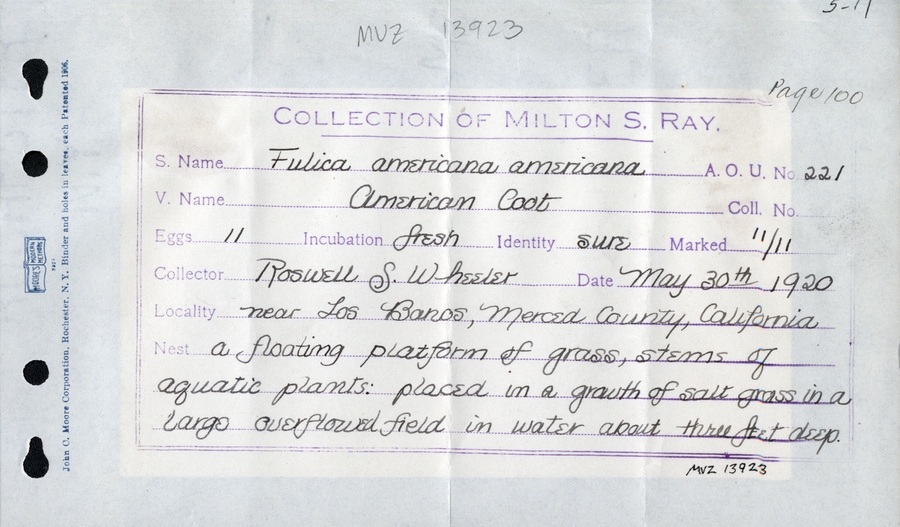 5-11
MVZ 13923
Page 100
COLLECTION OF MILTON S. RAY.
S. Name Fulica americana americana A. O. U. No. 221
V. Name American Coot Coll. No.
Eggs 11 Incubation fresh Identity sure Marked 11/11
Collector Roswell S. Wheeler Date May 30th 1920
Locality near Los Banos, Merced County, California
Nest a floating platform of grass, stems of
aquatic plants: placed in a growth of salt grass in a
large overflowed field in water about three feet deep.
MVZ 13923
John C. Moore Corporation, Rochester, N. Y. Binder and holes in leaves, each Patented 1906.
MOORE'S MODERN METHODS